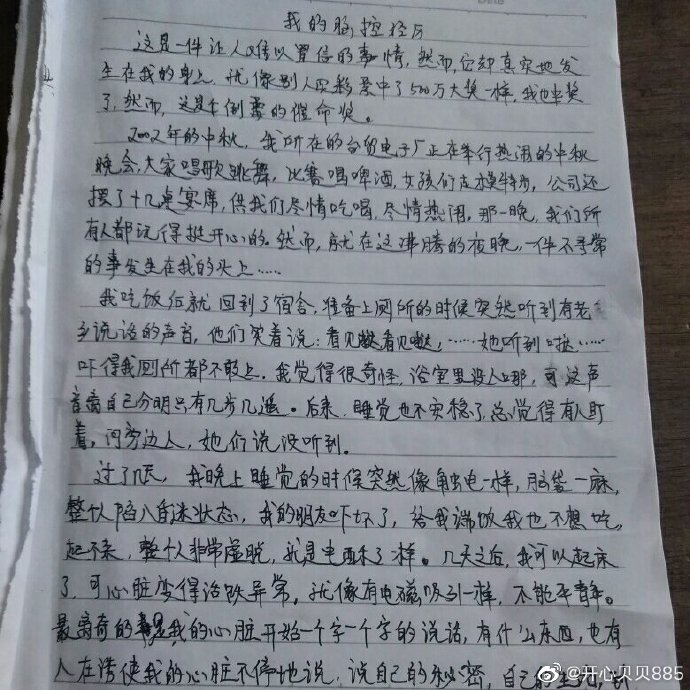 我的脑控经历
这是一件让人难以置信的事情，然而，它却真实地发
生在我的身上，就像别人买彩票中了500万大奖一样，我也中奖
了，然而，这是个倒霉的催命奖。
2002年的中秋，我所在的台资电子厂正在举行热闹的中秋
晚会，大家唱歌跳舞，比赛喝啤酒，女孩们走模特步，公司还
摆了十几桌宴席，供我们尽情吃喝，尽情热闹。那一晚，我们所
有人都玩得挺开心的。然而，就在这沸腾的夜晚，一件不寻常
的事发生在我的头上……
我吃饭后就回到了宿舍，准备上厕所的时候突然听到有老
乡说话的声音，他们笑着说：看见啦看见啦，……她听到啦……
吓得我厕所都不敢上。我觉得很奇怪，浴室里没人哪，可这声
音离自己分明只有几步几遥。后来，睡觉也不安稳了，总觉得有人盯
着，问旁边人，她们说没听到。
过了几天，我晚上睡觉的时候突然像触电一样，脑袋一麻，
整个人陷入昏迷状态，我的朋友吓坏了，给我端饭我也不想吃，
起不来，整个人非常虚脱，就是电晕了一样。几天之后，我可以起床
了，可心脏变得活跃异常。就像有电磁吸引一样，不能平静。
最离奇的是我的心脏开始一个字一个字的说话，有什么东西，也有
人在诱使我的心脏不停地说，说自己的秘密，自己
@开心贝贝885